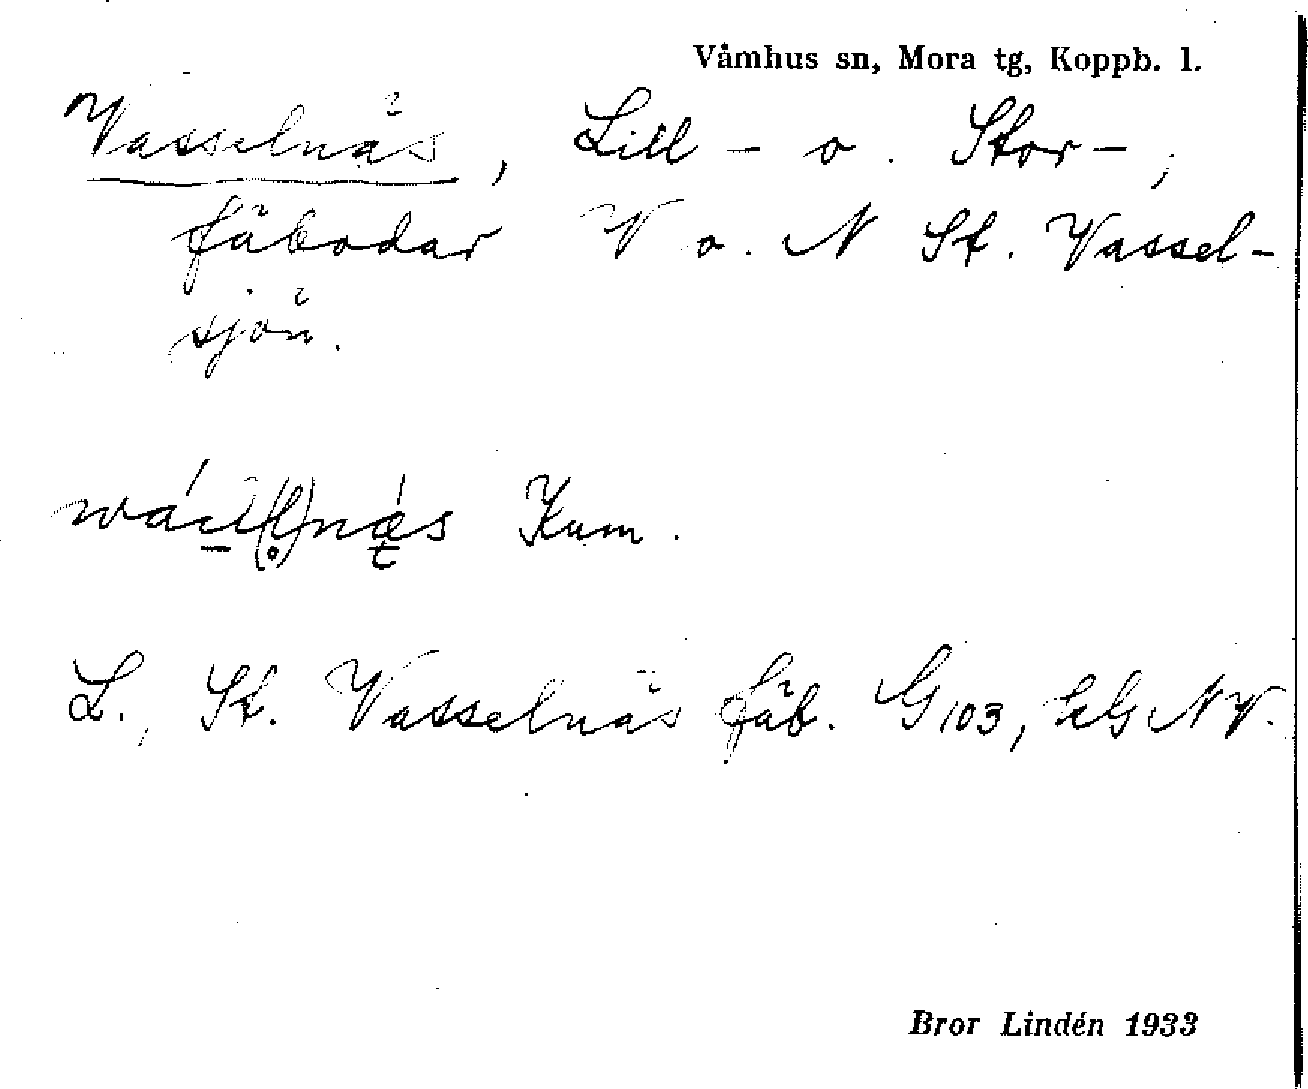 Våmhus sn, Mora tg, Koppb. l.
Vasselnäs, Lill- o. Stor-,
fäbodar V o. N St. Vassel-
sjön.
Kum.
L., St. Vasselnäs fäb. G 103, NV.
Bror Lindén 1933